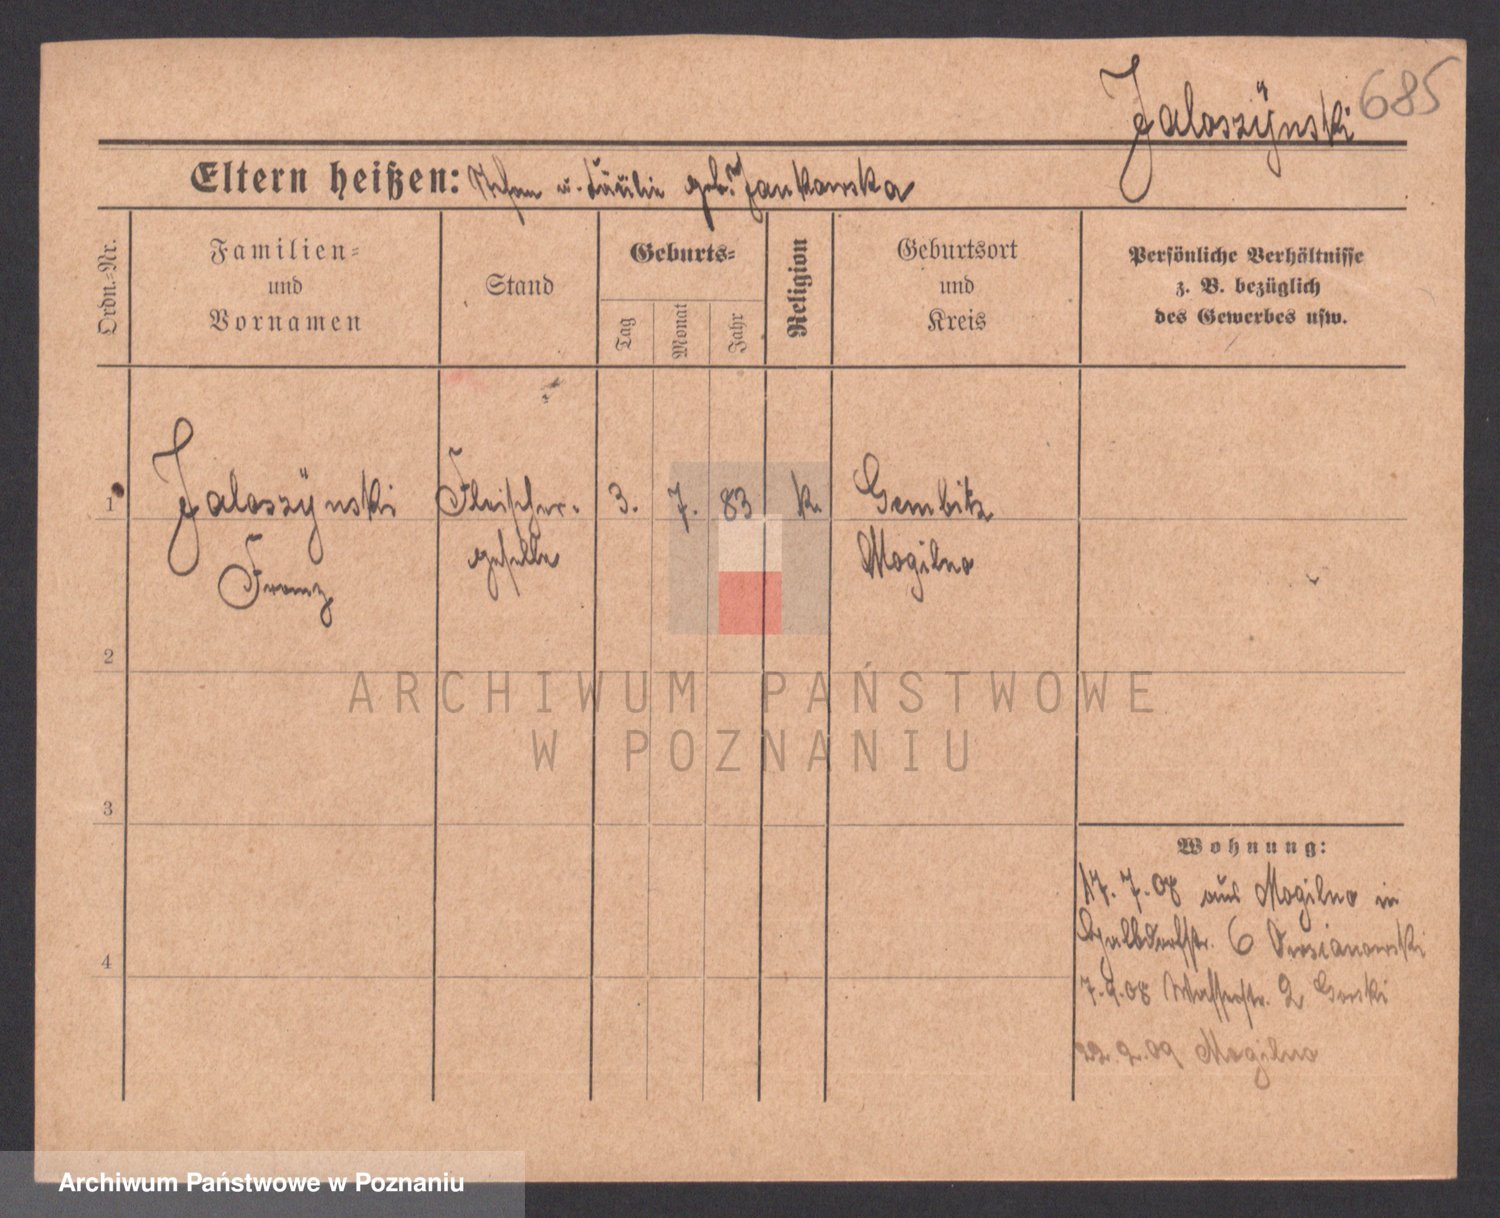 Jaloszÿnski 685
Eltern heißen: u. Cäcilie geb. Jankowska
Ordn.-Nr.
Familien-
und
Vornamen
Stand
Geburts-
Tag
Monat
Jahr
Religion
Geburtsort
und
Kreis
Persönliche Verhältnisse
z. B. bezüglich
des Gewerbes usw.
1 Jaloszÿnski Fleischer- 3. 7. 83 k. Gembitz
Franz geselle Mogilno
2
ARCHIWUM PAŃSTWOWE
W POZNANIU
3
Wohnung:
17. 7. 08 aus Mogilno in
6
4
7. 9. 08 Wasserstr. 2 Gorski
22. 2. 09 Mogilno
Archiwum Państwowe w Poznaniu